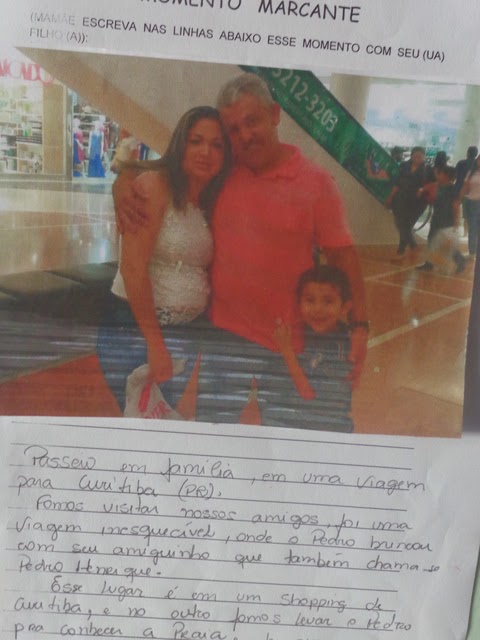 MOMENTO MARCANTE
(MAMÃE ESCREVA NAS LINHAS ABAIXO ESSE MOMENTO COM SEU (UA)
FILHO (A)):
3212-3203
Passeio em família, em uma viagem
para Curitiba (PR).
Fomos visitar nossos amigos, foi uma
viagem inesquecível, onde o Pedro brincou
com seu amiguinho que também chama-se
Pedro Henrique.
Esse lugar é em um shopping de
Curitiba, e no outro fomos levar o Pedro
pra conhecer a Praia,